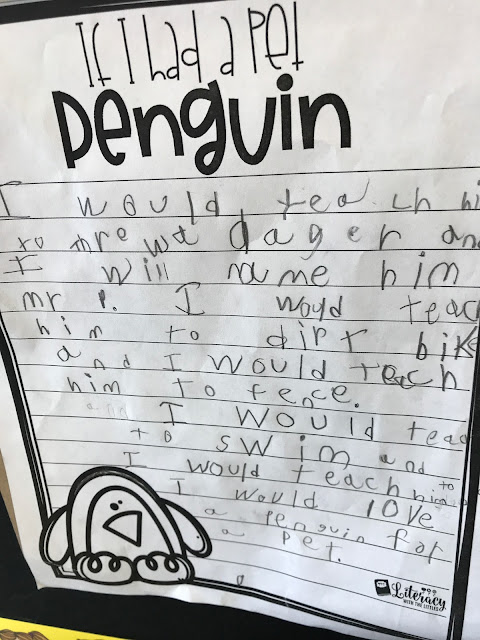 If I had a Pet
Penguin
I would teach hi
to threwt dager and
I will name him
mr P. I would teac
him to dirt bike
and I would teach
him to fence.
and I would teac
to swim and
I would teach him to
I would love
a penguin for
a pet.
Literacy
WITH THE LITTLES